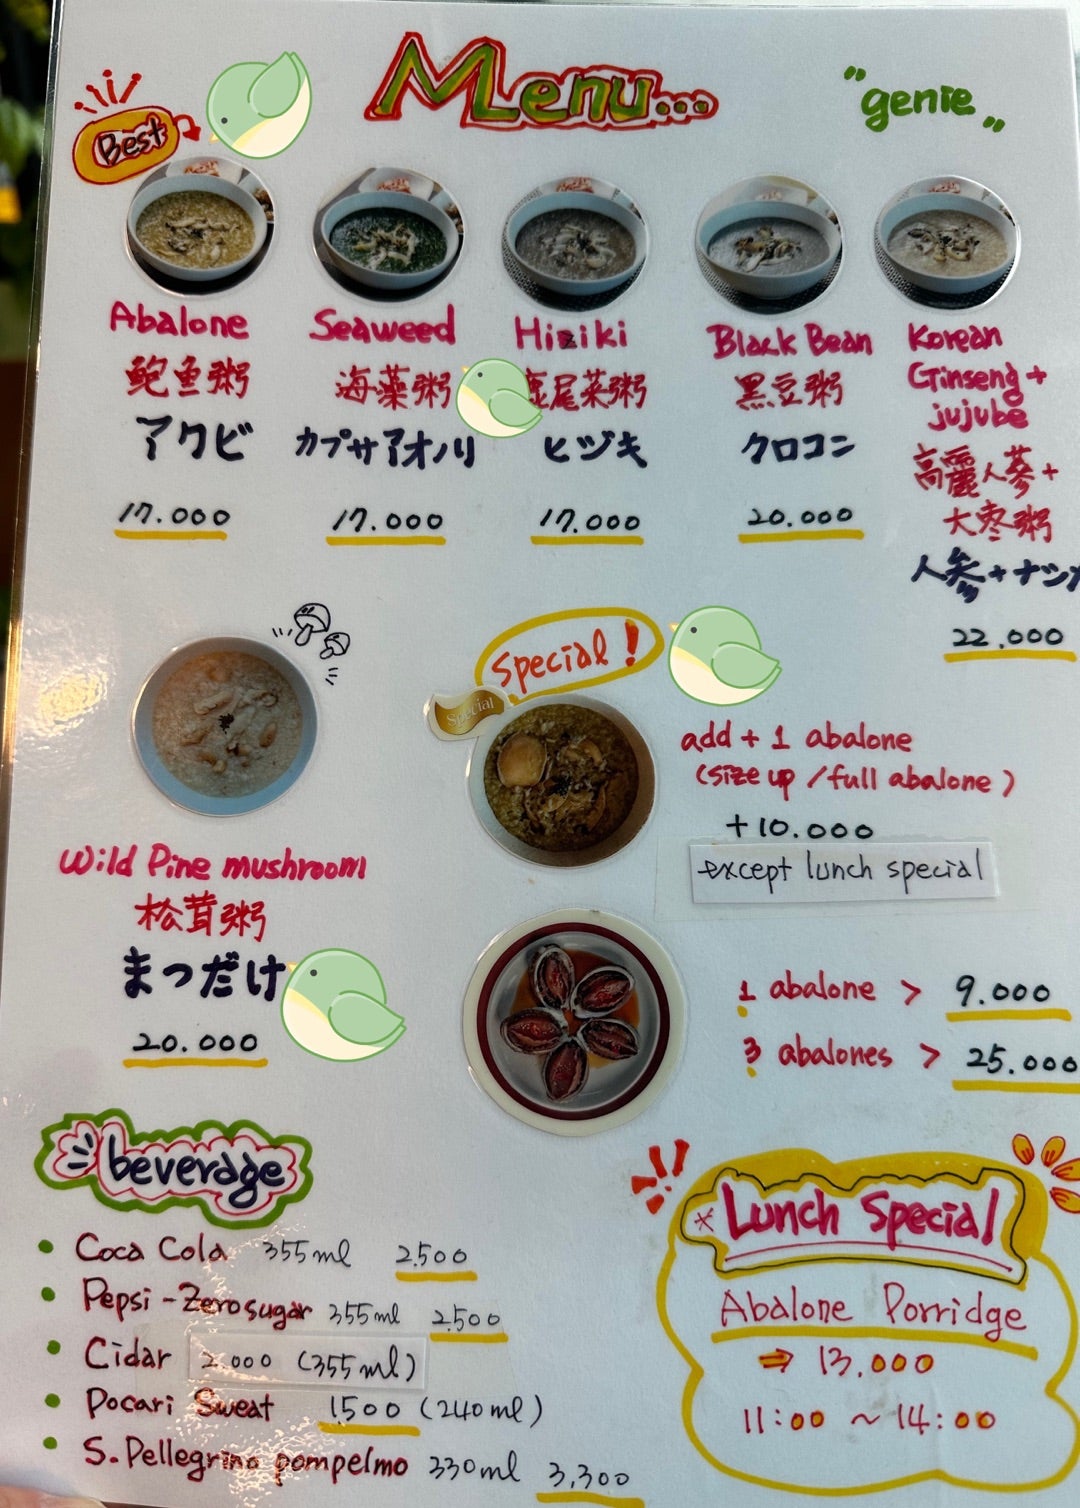 Menu...
"genie"
Best
Abalone
鮑魚粥
アワビ
17.000
Seaweed
海藻粥
カプサアオノリ
17.000
Hiziki
鹿尾菜粥
ヒヅキ
17.000
Black Bean
黒豆粥
クロコン
20.000
Korean
Ginseng +
jujube
高麗人蔘+
大枣粥
人参+ナツメ
22.000
Wild Pine mushroom
松茸粥
まつだけ
20.000
Special!
Special
add + 1 abalone
(size up / full abalone)
+10.000
except lunch special
1 abalone > 9.000
3 abalones > 25.000
beverage
Coca Cola 355ml 2.500
Pepsi - Zero sugar 355ml 2.500
Cidar 2.000 (355ml)
Pocari Sweat 1.500 (240ml)
S. Pellegrino pompelmo 330ml 3,300
* Lunch Special
Abalone Porridge
⇒ 13,000
11:00 ~ 14:00